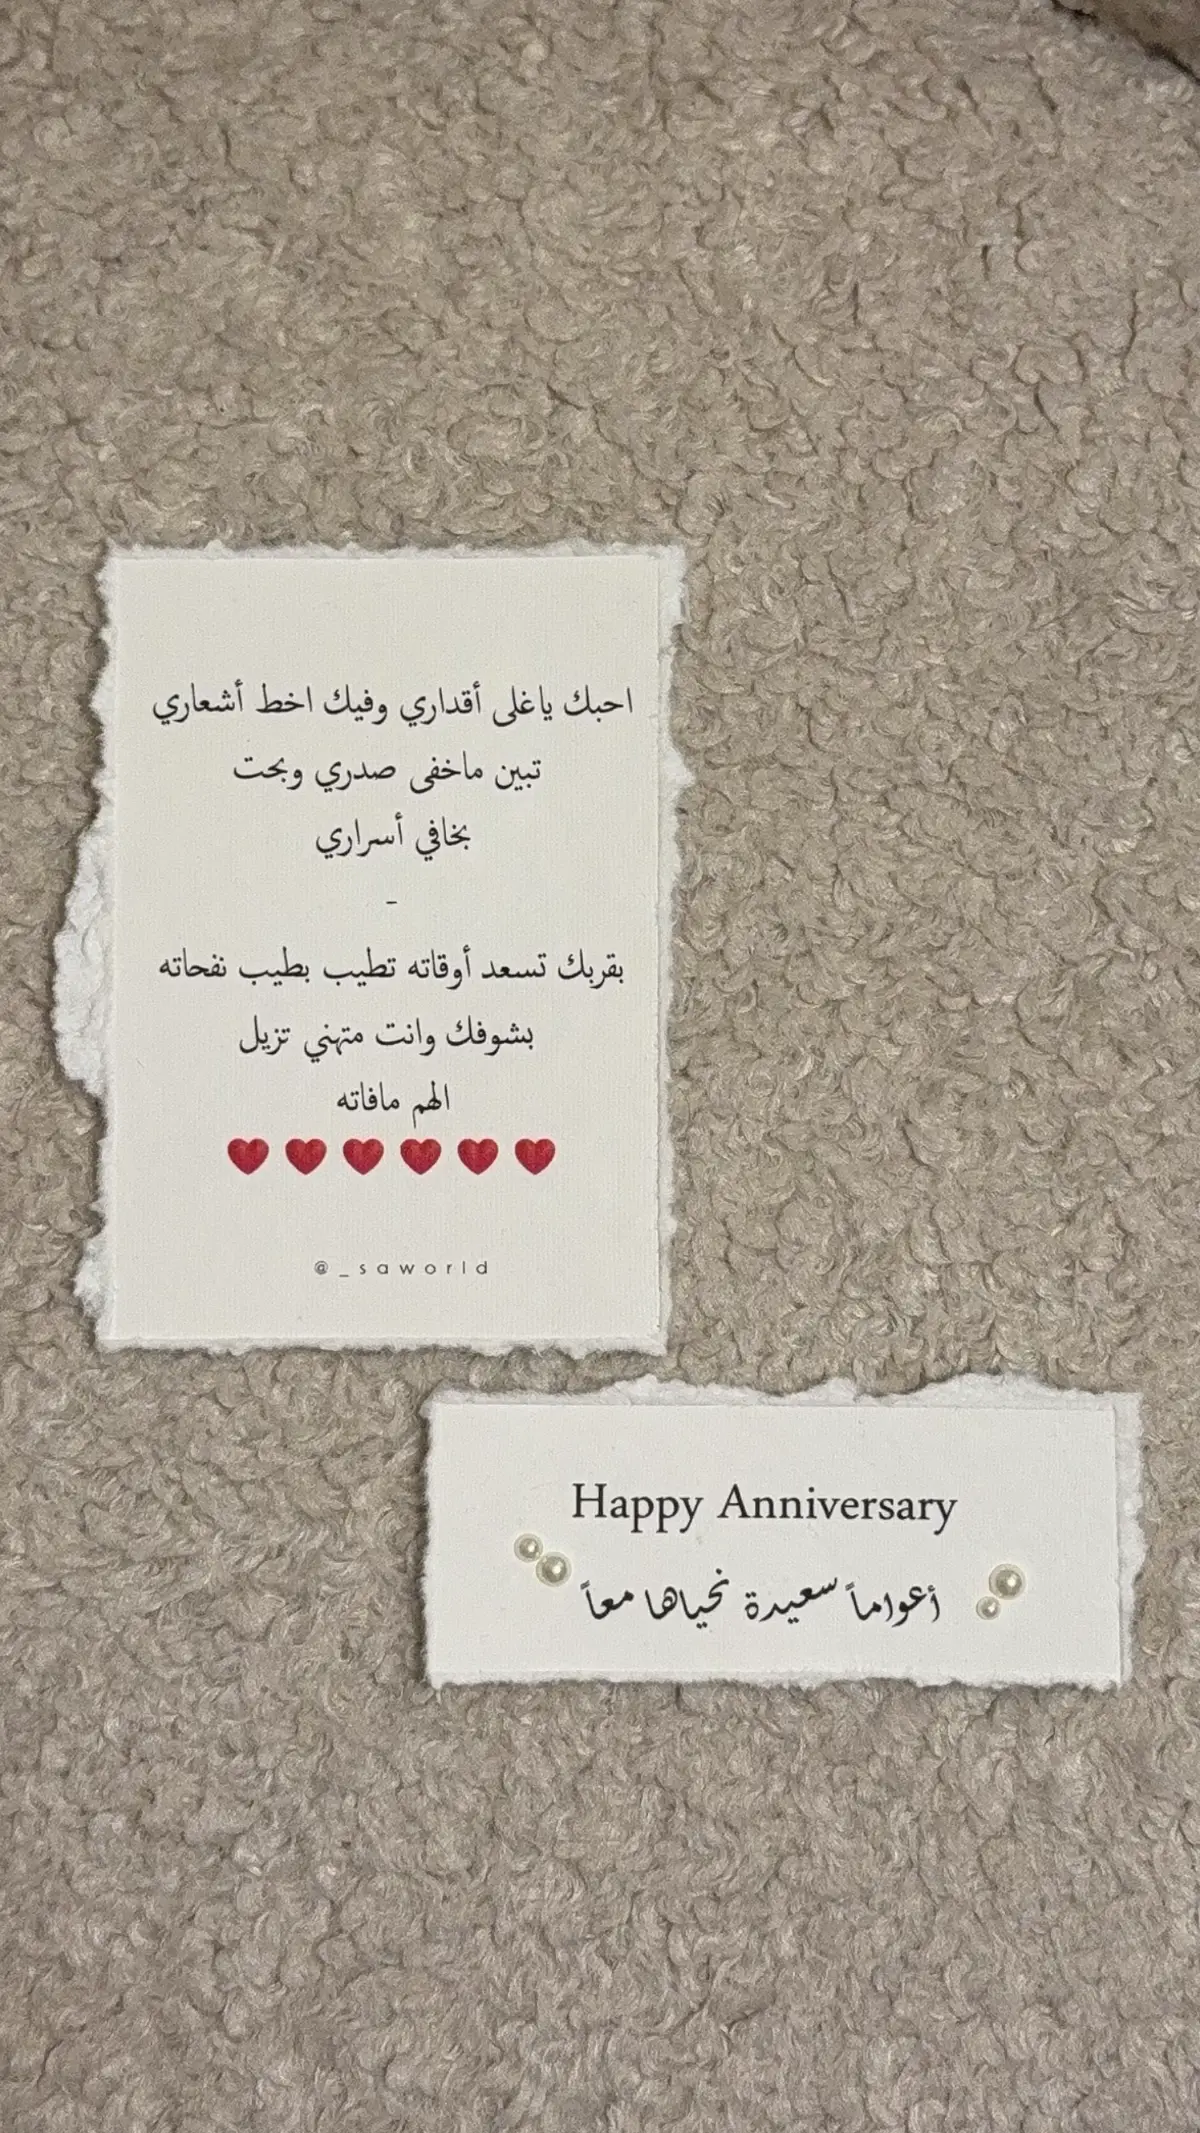 احبك ياغلى أقداري وفيك اخط أشعاري
تبين ماخفى صدري وبحت
بخافي أسراري
-
بقربك تسعد أوقاته تطيب بطيب نفحاته
بشوفك وانت متهني تزيل
الهم مافاته
❤️❤️❤️❤️❤️❤️
@_saworld
Happy Anniversary
أعواماً سعيدة نحياها معاً